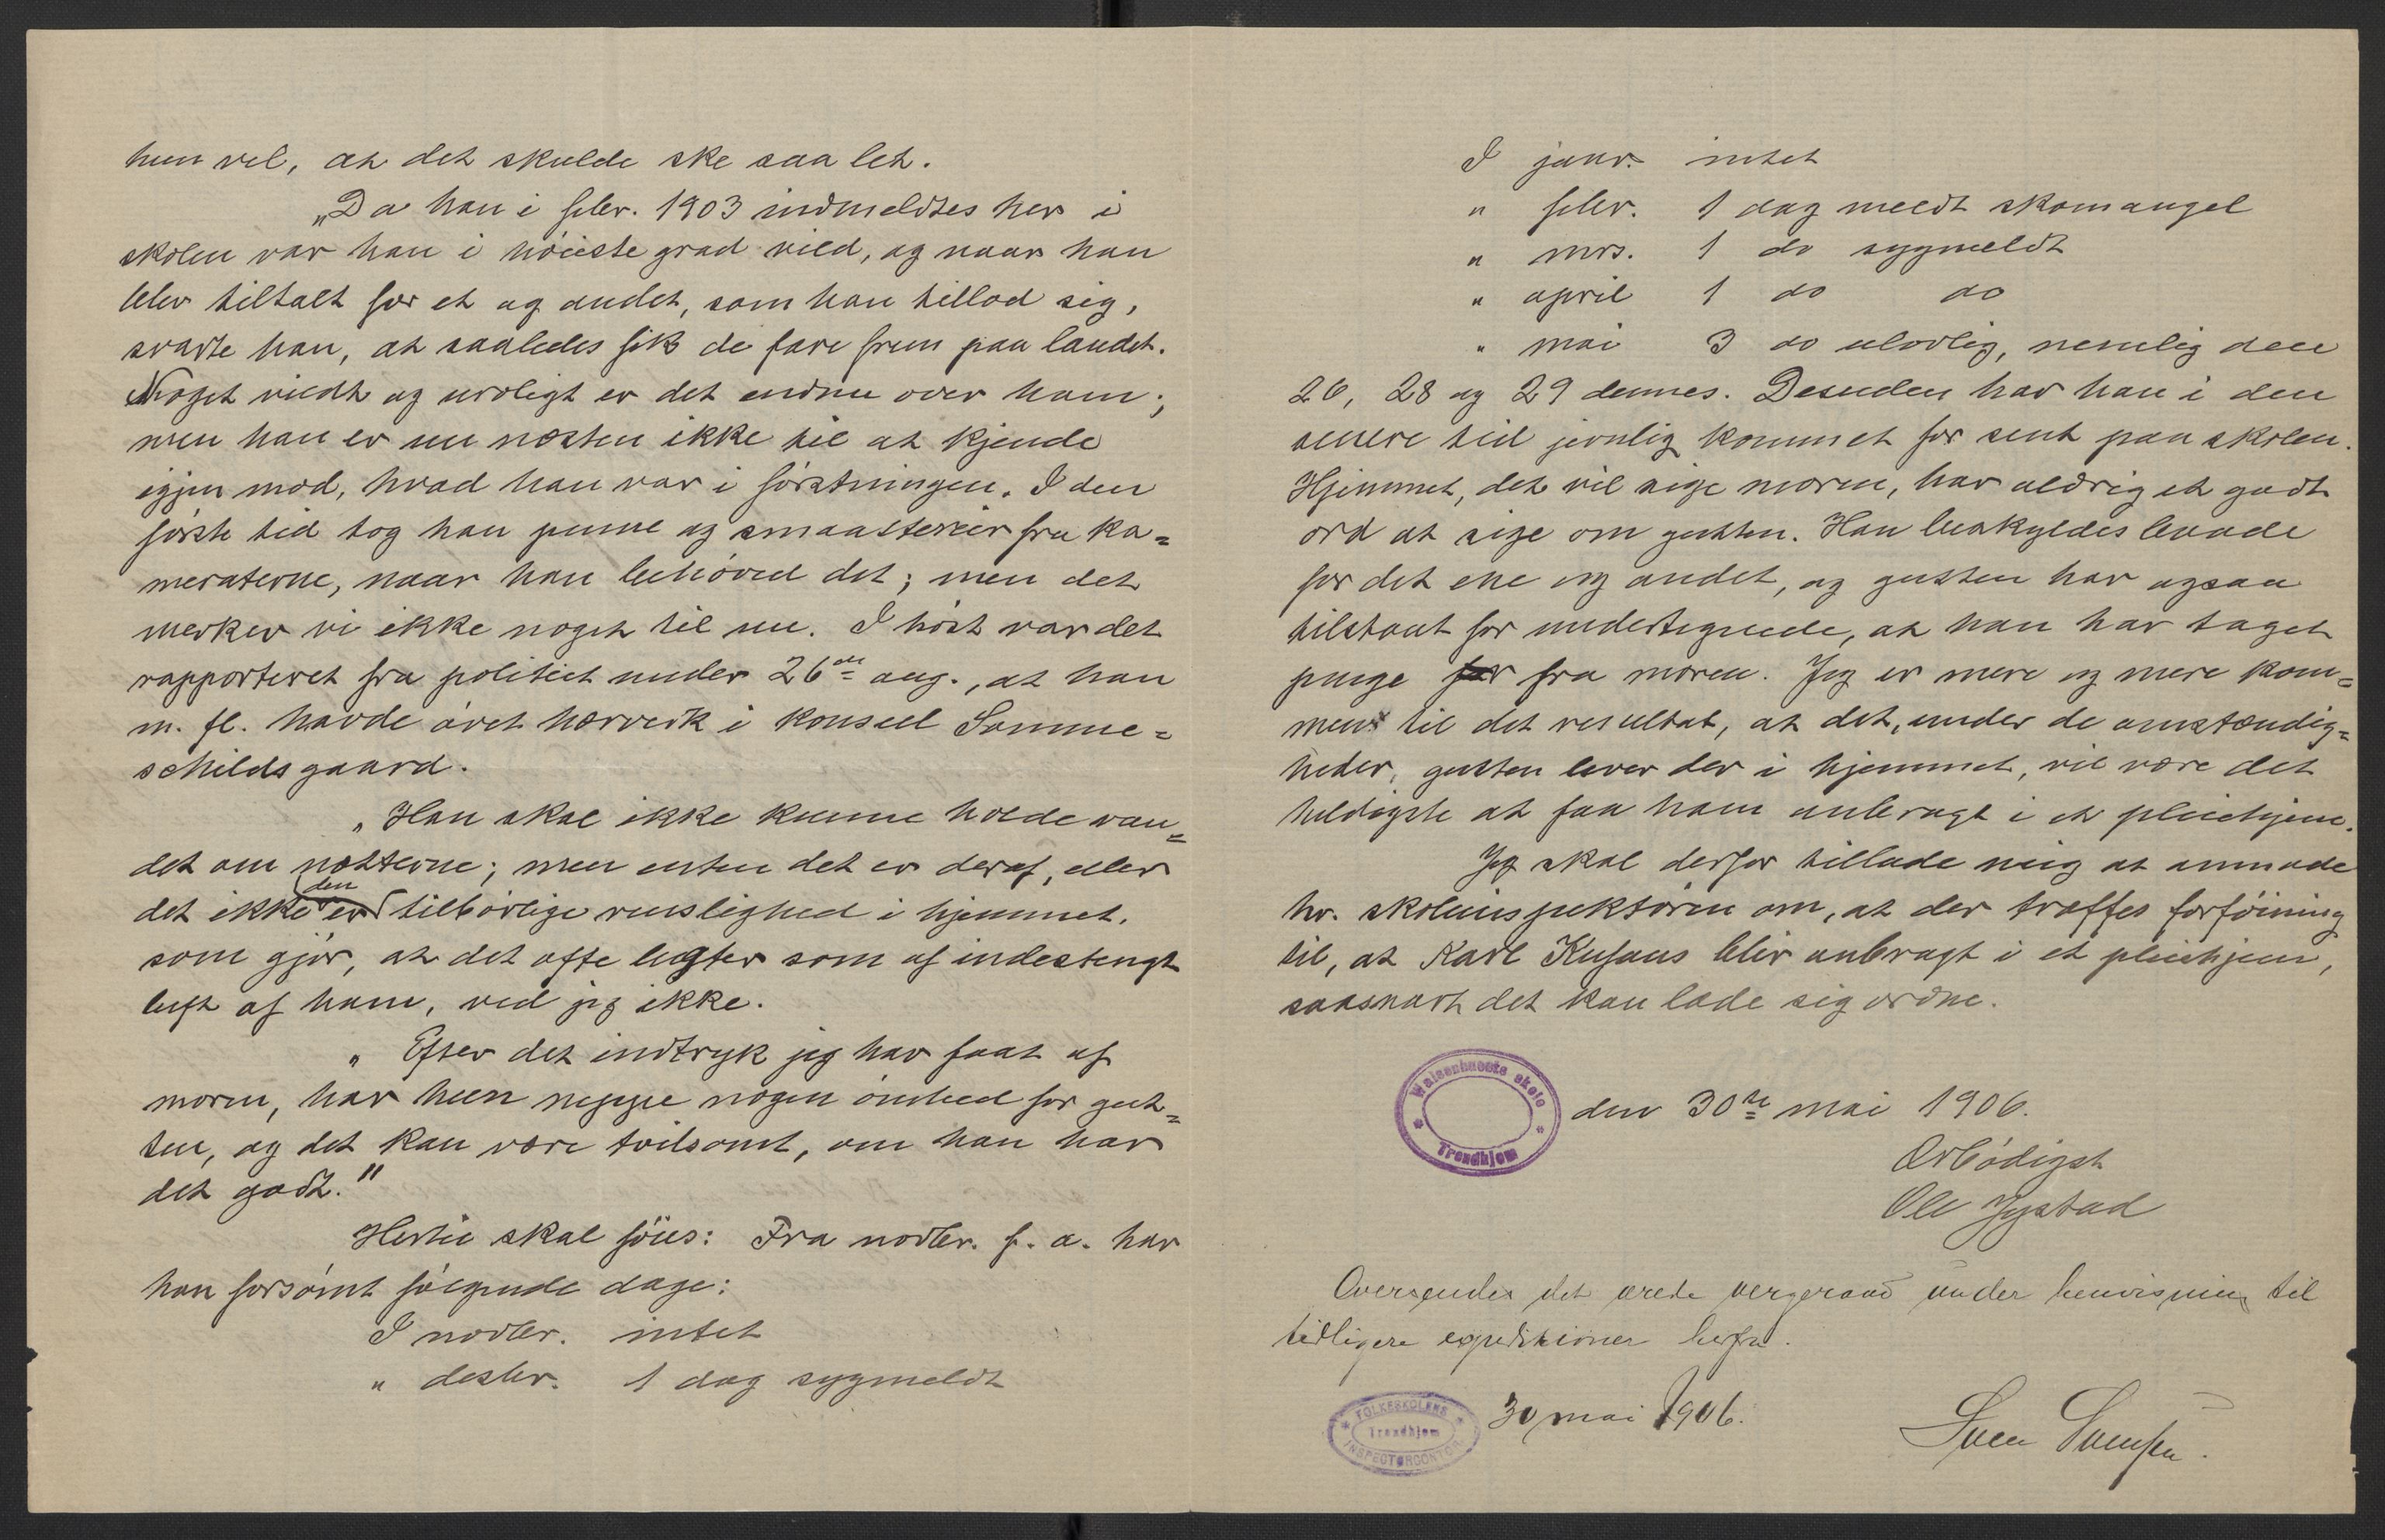 hun vel, at det skulde ske saa let.
„Da han i febr. 1903 indmeldtes her i
skolen var han i höieste grad vild, og naar han
blev tiltalt for et og andet, som han tillod sig,
svarte han, at saaledes fik de fare frem paa landet.
Noget vildt og uroligt er det endnu over ham;
men han er nu næsten ikke til at kjende
igjen mod, hvad han var i förstningen. I den
förste tid tog han penne og smaasterier fra ka=
meraterne, naar han behöved det; men det
merker vi ikke noget til nu. I höst var det
rapporteret fra politiet under 26de aug., at han
m. fl. havde övet hærverk i konsul Somme=
schilds gaard.
„Han skal ikke kunne holde van=
det om nætterne; men enten det er deraf, eller
det ikke er den tilbörlige renslighed i hjemmet,
som gjör, at det ofte lugter som af indestengt
luft af ham, ved jeg ikke.
„Efter det indtryk jeg har faat af
moren, har hun neppe nogen ömhed for gut=
ten, og det kan være tvilsomt, om han har
det godt."
Hertil skal föies: Fra novbr. f. a. har
han forsömt fölgende dage:
I novbr. intet
„ desbr. 1 dag sygmeldt
I janr. intet
„ febr. 1 dag meldt skomangel
„ mrs. 1 do sygmeldt
„ april 1 do do
„ mai 3 do ulovlig, nemlig den
26, 28 og 29 dennes. Desuden har han i den
senere tid jevnlig kommet for sent paa skolen.
Hjemmet, det vil sige moren, har aldrig et godt
ord at sige om gutten. Han beskyldes baade
for det ene og andet, og gutten har ogsaa
tilstaat for undertegnede, at han har taget
penge fra moren. Jeg er mere og mere kom=
men til det resultat, at det, under de omstændig=
heder, gutten lever der i hjemmet, vil være det
heldigste at faa ham anbragt i et pleiehjem.
Jeg skal derfor tillade mig at anmode
hr. skoleinspektören om, at der træffes forföining
til, at Karl Kufaas blir anbragt i et pleiehjem,
saasnart det kan lade sig ordne.
Waisenhusets skole
Trondhjem
den 30te mai 1906.
Ærbödigst
Ole Jystad
Oversendes det ærede vergeraad under henvisning til
tidligere expeditioner herfra.
FOLKESKOLENS
Trondhjem
INSPECTØRCONTOR
30 mai 1906.